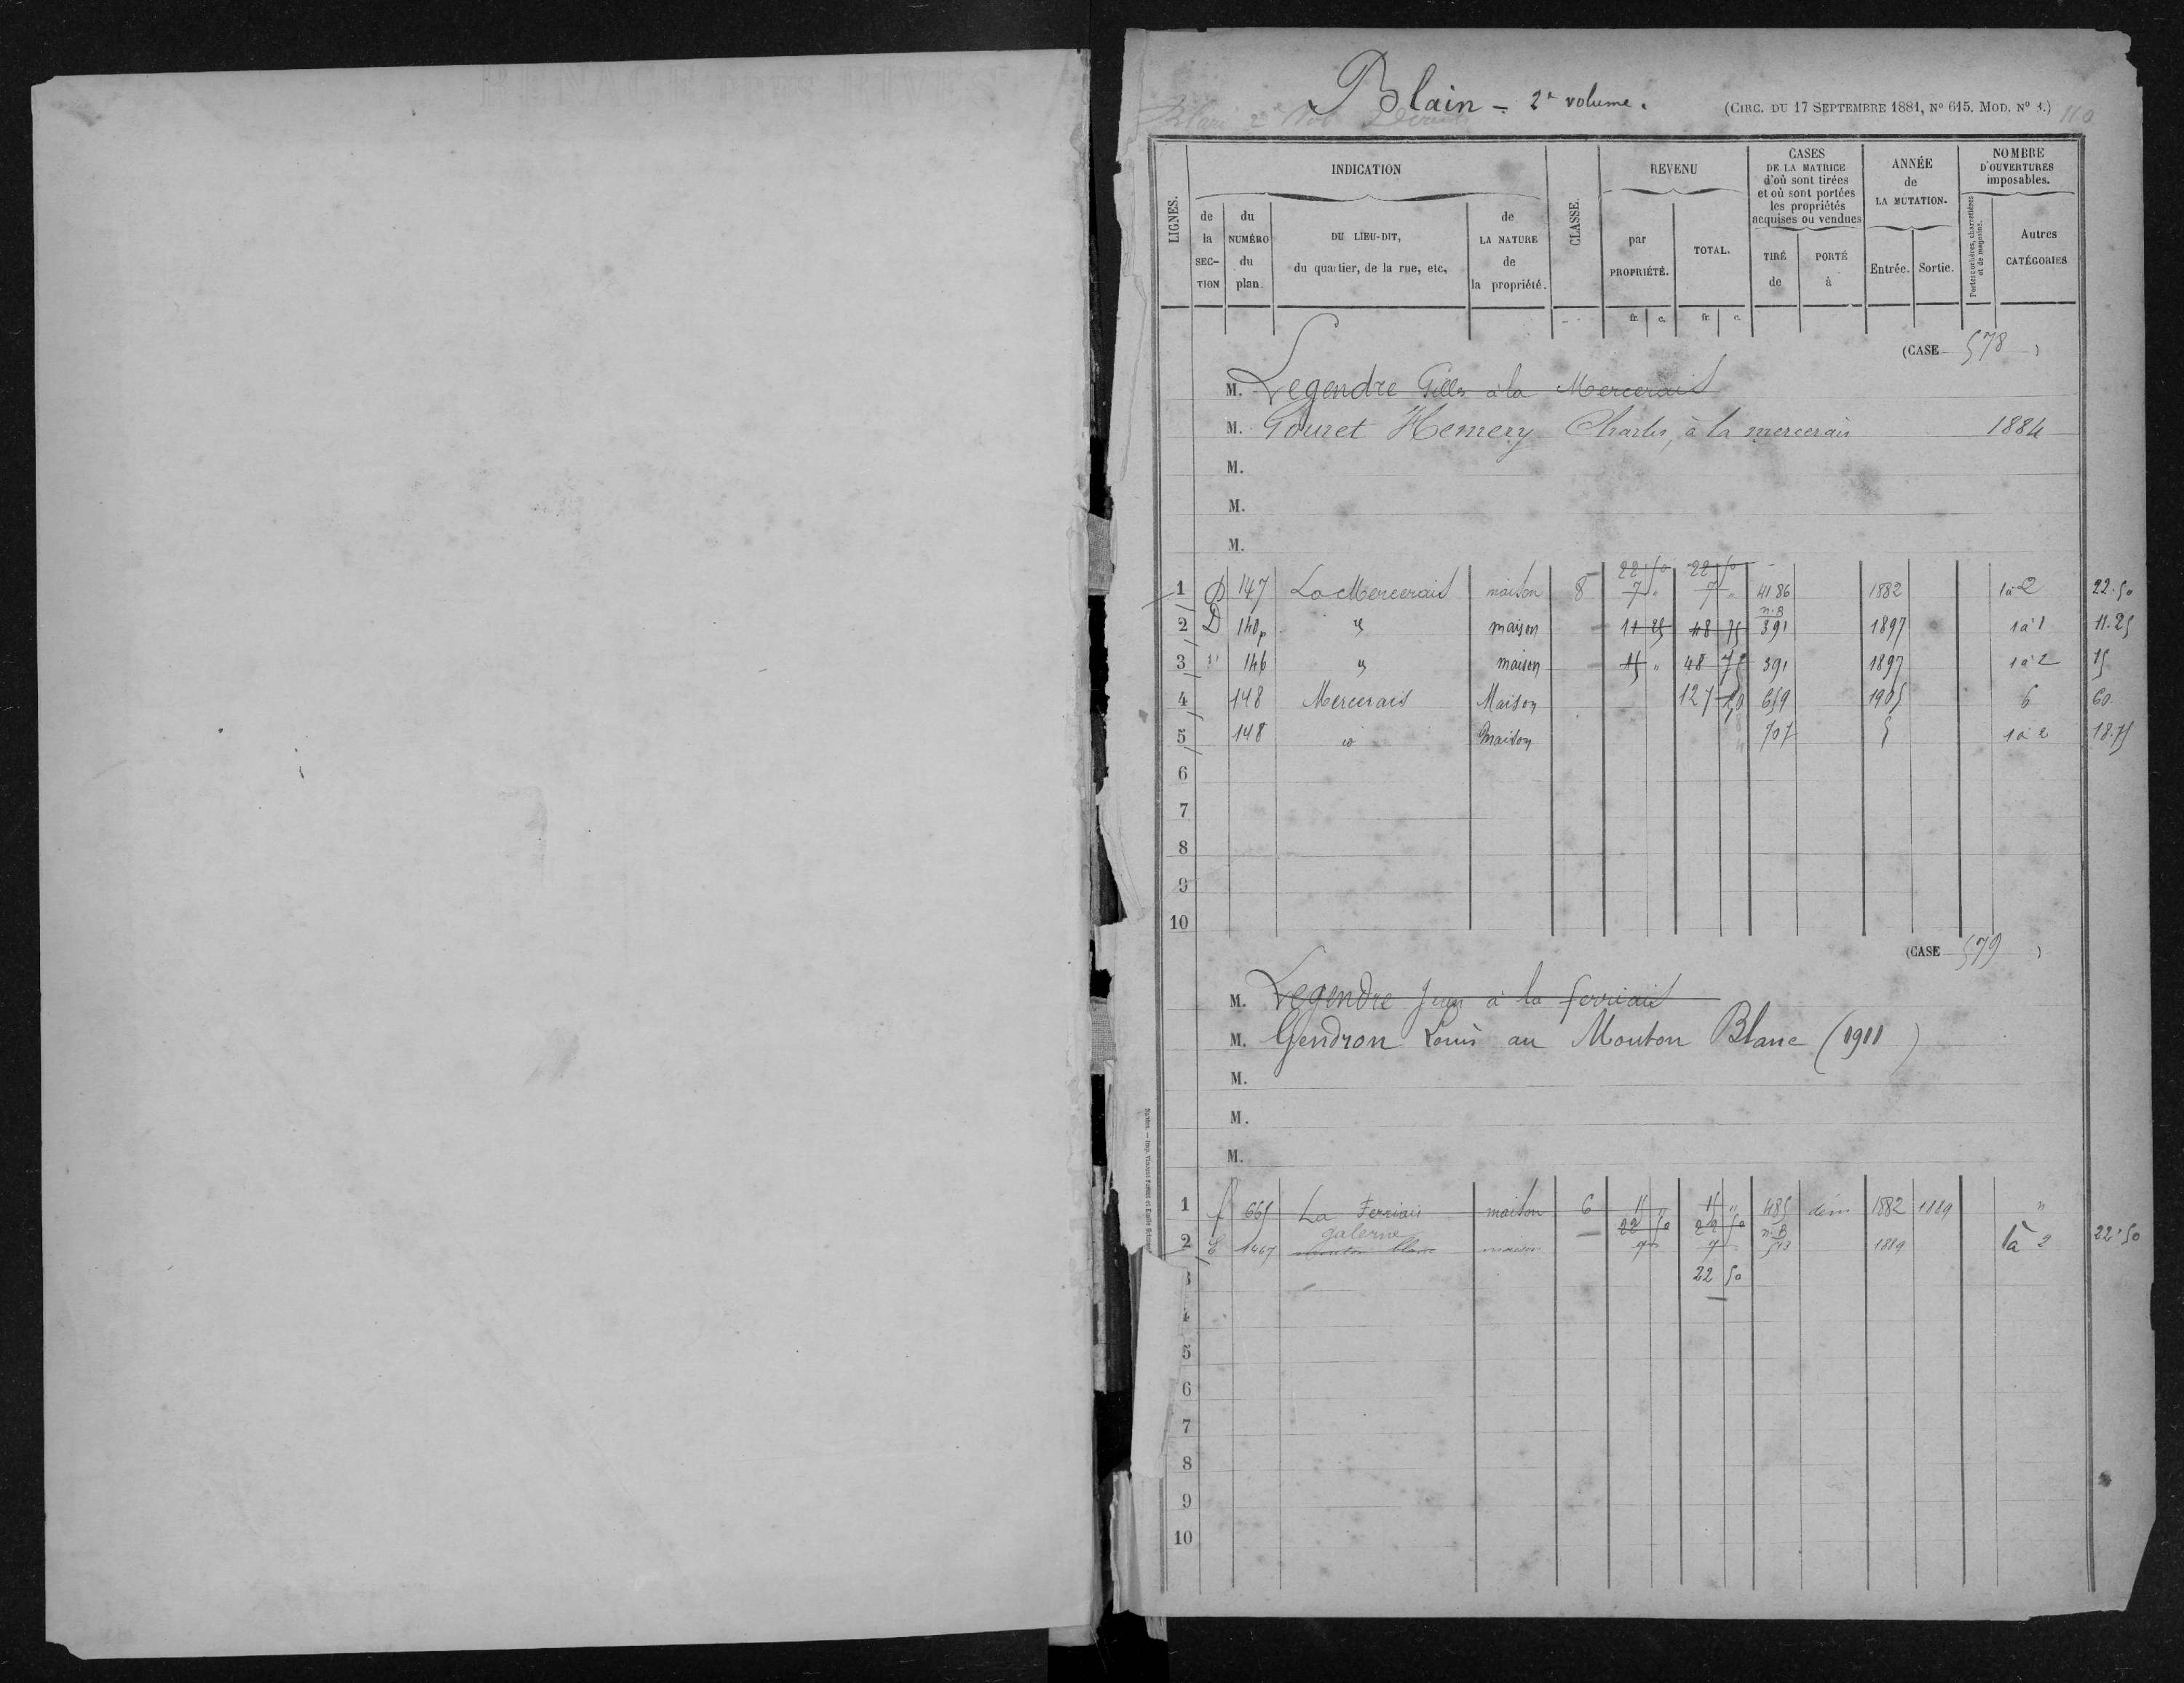 Blain - 2e volume.
(CIRC. DU 17 SEPTEMBRE 1881, No 615. MOD. No 1.) 110
Blain 2e Vol
LIGNES.
INDICATION
CLASSE.
REVENU
CASES DE LA MATRICE d'où sont tirées et où sont portées les propriétés acquises ou vendues
ANNÉE de LA MUTATION.
NOMBRE D'OUVERTURES imposables.
de la SEC-TION
du NUMÉRO du plan.
DU LIEU-DIT, du quartier, de la rue, etc,
de LA NATURE de la propriété.
par PROPRIÉTÉ.
TOTAL.
TIRÉ de
PORTÉ à
Entrée.
Sortie.
Portes cochères, charretières et de magasins.
Autres CATÉGORIES
fr. c. fr. c.
(CASE 578 )
M. Legendre Gilles à la Mercerais
M. Gouret Hemery Charles, à la mercerais 1884
M.
M.
M.
22 50 22 50
1 D 147 La Mercerais maison 8 7 " 7 " 4186 1882 1à2 22.50
n.B
2 D 140p maison 11 25 48 75 391 1897 1à1 11.25
3 146 maison 15 " 48 75 391 1897 1à2 15
4 148 Mercerais Maison 127 50 659 1905 6 60
5 148 maison 707 1à2 18.75
6
7
8
9
10
(CASE 579 )
M. Legendre Jean à la ferriais
M. Gendron Louis au Mouton Blanc (1911)
M.
M.
M.
1 f 665 La Ferriais maison 6 15 " 15 " 485 dém 1882 1889 "
galerne 22 50 22 50 n.B
2 E 1467 mouton blanc maison 7 7 513 1889 1à 2 22.50
3 22 50
4
5
6
7
8
9
10